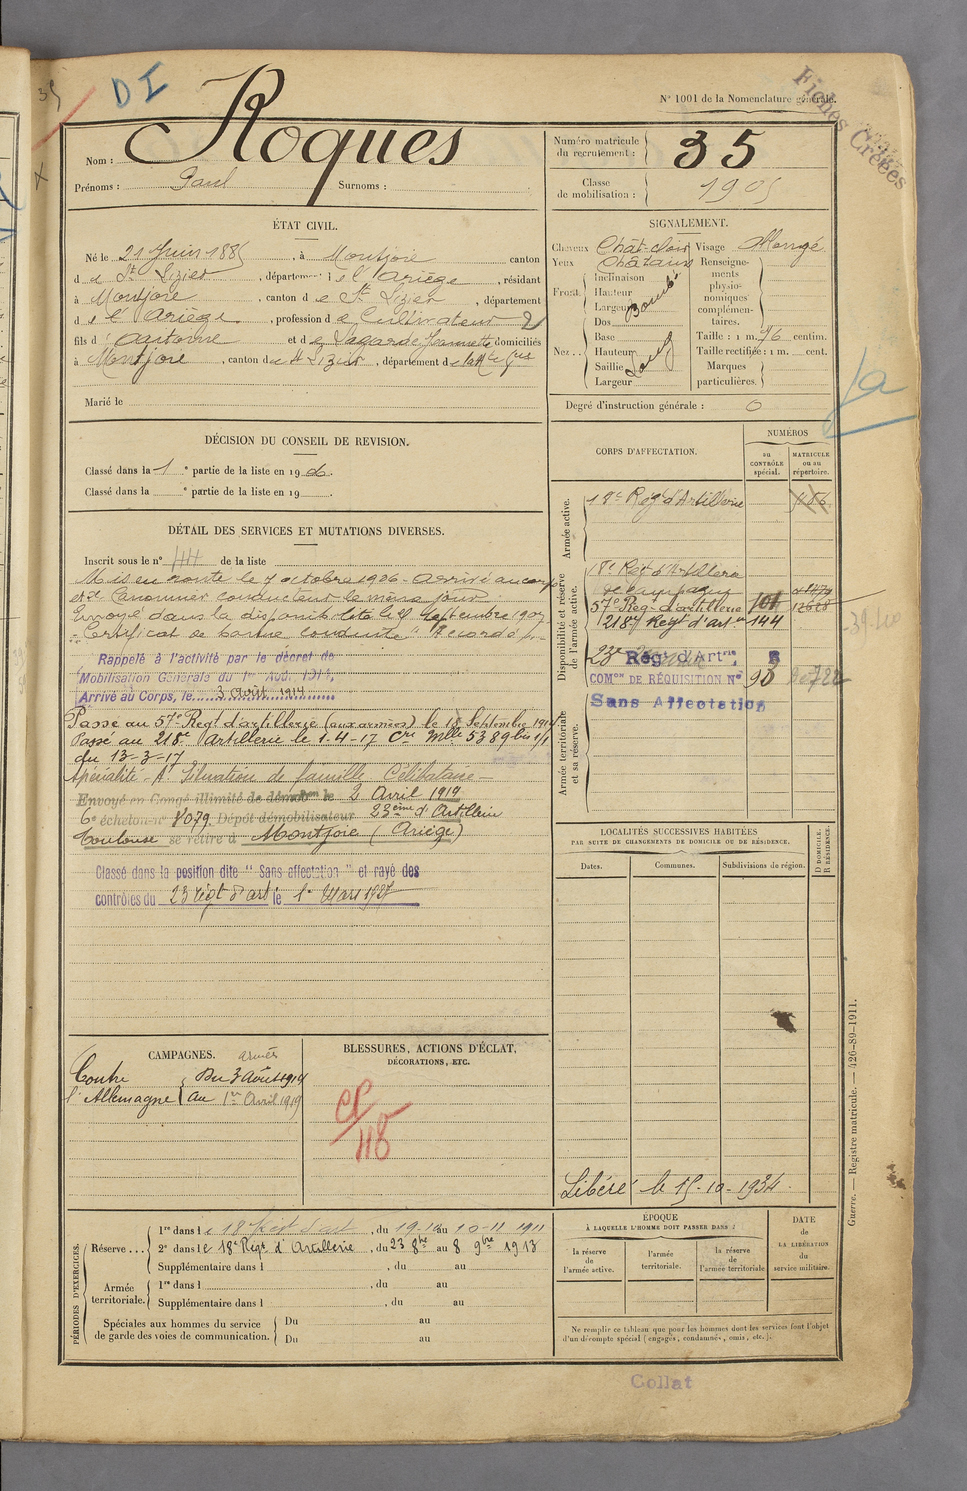 35
DI
N° 1001 de la Nomenclature générale.
Fiches Créées
Nom : Roques
Prénoms : Paul Surnoms :
Numéro matricule du recrutement : 35
Classe de mobilisation : 1905
ÉTAT CIVIL.
Né le 21 Juin 1885, à Montjoie canton
d e St Lizier, département d e l'Ariège, résidant
à Montjoie, canton d e St Lizier, département
d e l'Ariège, profession d e Cultivateur 2
fils d' Antoine et d e Lagarde Jeannette domiciliés
à Montjoie, canton d e St Lizier, département d e
Marié le
SIGNALEMENT.
Cheveux Chât-clair Visage allongé
Yeux Châtains
Front. Inclinaison
Hauteur
Largeur
Bombé
Nez.. Dos
Base
Hauteur
Saillie
Largeur
Long
Renseignements physionomiques complémentaires.
Taille : 1 m. 76 centim.
Taille rectifiée : 1 m. cent.
Marques particulières.
Degré d'instruction générale : 0
DÉCISION DU CONSEIL DE REVISION.
Classé dans la 1 e partie de la liste en 19 06.
Classé dans la e partie de la liste en 19 .
DÉTAIL DES SERVICES ET MUTATIONS DIVERSES.
Inscrit sous le n° 44 de la liste
Mis en route le 7 octobre 1906 - Arrivé au corps
et 2e Canonnier conducteur le même jour
Envoyé dans la disponibilité le Septembre 1907
Certificat de bonne conduite "Accordé"
Rappelé à l'activité par le décret de
Mobilisation Générale du 1er Aoû. 1914,
Arrivé au Corps, le 3 Août 1914
Passé au 57e Regt d'artillerie (aux armées) le 18 Septembre 1914
Passé au 218e Artillerie le 1-4-17 Cre Mlle 5389 bis 1/1
du 13-3-17
Spécialité - A. Situation de famille Célibataire -
Envoyé en Congé illimité de démobon le 2 Avril 1919
6e échelon n° 8079 Dépôt démobilisateur 23ème d'Artillerie
Toulouse se retire à Montjoie (Ariège)
Classé dans la position dite "Sans affectation" et rayé des
contrôles du 23 régt d'art le 1er Mars 1927
CORPS D'AFFECTATION.
NUMÉROS
au CONTRÔLE spécial.
MATRICULE ou au répertoire.
Armée active.
18e Reg d'Artillerie 486
Disponibilité et réserve de l'armée active.
18e Regt d'Artillerie
57e Reg- d'artillerie 101
218e Regt d'art ie 144
23e Régt d'Artie
COMon DE RÉQUISITION N° 93
Sans Affectation
Armée territoriale et sa réserve.
LOCALITÉS SUCCESSIVES HABITÉES
PAR SUITE DE CHANGEMENTS DE DOMICILE OU DE RÉSIDENCE.
Dates. Communes. Subdivisions de région. D DOMICILE. R RÉSIDENCE.
Libéré le 15-10-1934.
CAMPAGNES.
armées
Contre l'Allemagne Du 3 Août 1914
au 1er Avril 1919
BLESSURES, ACTIONS D'ÉCLAT,
DÉCORATIONS, ETC.
PÉRIODES D'EXERCICES.
Réserve...
1re dans le 18e Regt d'art, du 19-10 au 10-11 1911
2e dans le 18e Regt d'Artillerie, du 23 8bre au 8 9bre 1913
Supplémentaire dans l , du au
Armée territoriale.
1re dans l , du au
Supplémentaire dans l , du au
Spéciales aux hommes du service de garde des voies de communication.
Du au
Du au
ÉPOQUE
À LAQUELLE L'HOMME DOIT PASSER DANS :
la réserve de l'armée active.
l'armée territoriale.
la réserve de l'armée territoriale
DATE de LA LIBÉRATION du service militaire.
Ne remplir ce tableau que pour les hommes dont les services font l'objet
d'un décompte spécial (engagés, condamnés, omis, etc.).
Guerre. — Registre matricule. — 426-89-1911.
Collat